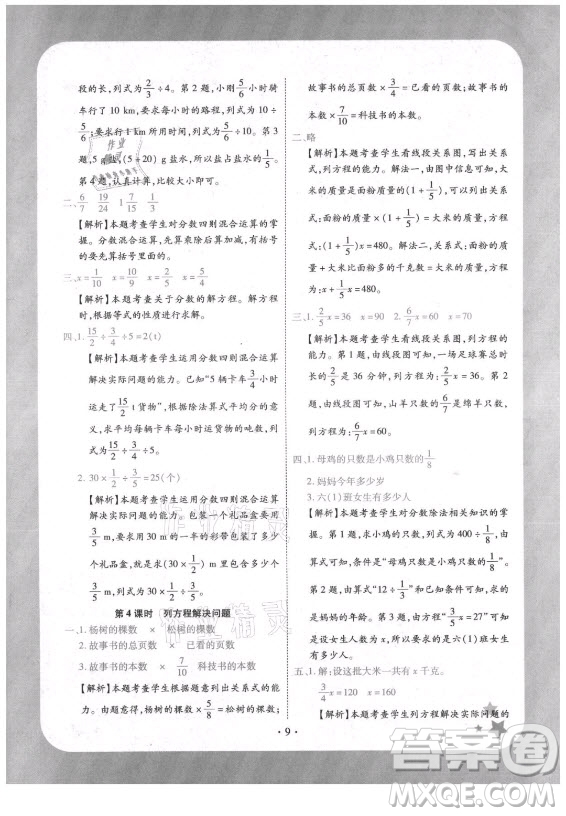 段的长,列式为2/3÷4。第 2 题,小刚5/6小时骑
车行了 10 km,要求每小时的路程,列式为 10÷
5/6;要求行 1 km 所用时间,列式为5/6÷10。第 3
题,5 g盐,(5+20) g 盐水,所以盐占盐水的1/5。
第 4 题,认真计算,比较大小即可。
二、6/7 19/24 1 7/15 7/15
【解析】本题考查学生对分数四则混合运算的掌
握。分数混合运算,先算乘除后算加减,有括号
的要先算括号里面的。
三、x=1/10 x=9/10 x=5/8 x=5/4
【解析】本题考查关于分数的解方程。解方程时
根据等式的性质进行求解。
四、1. 15/2÷3/4÷5=2(t)
【解析】本题考查学生运用分数四则混合运算
解决实际问题的能力。已知“5 辆卡车3/4小时
运走了15/2 t 货物”,根据除法算式平均分的意
义,要求每辆卡车每小时运送货物的数量,列
式为15/2÷3/4÷5。
2. 30×1/2÷3/5=25(个)
【解析】本题考查学生运用分数四则混合运算
解决实际问题的能力。包装一个礼品盒要用
3/5 m,求用去 30 m 的一半的彩带包装了多少
个礼品盒,就是求 30 m 的1/2包含了多少个
3/5 m,列式为 30×1/2÷3/5。
第 4 课时 列方程解决问题
一、1. 杨树的棵数 × 松树的棵数
2. 故事书的总页数 × 已看的页数
3. 故事书的本数 × 7/10 科技书的本数
【解析】本题考查学生根据题意列出关系式的掌
握。杨树的棵数×5/8=松树的棵数;
故事书的总页数×3/4=已看的页数;故事书的
本数×7/10=科技书的本数。
二、略
【解析】本题考查学生看线段关系图,写出关系
式,列方程的能力。解法一,由图中信息可知,大
米的质量是面粉质量的(1+1/5),根据关系式:
面粉质量×(1+1/5)=大米的质量,列方程为
(1+1/5)x=480。解法二,关系式:面粉的千克
数+大米比面粉多的千克数=大米的千克数,
列方程为 x+1/5x=480。
三、1. 2/5x=36 x=90 2. 6/7x=60 x=70
【解析】本题考查学生看线段关系图,列方程的
能力。第 1 题,由线段图可知,一场足球赛总时
长的2/5是 36 分,求一场足球赛的总时长,列式为
2/5x=36。第 2 题,由线段图可知,山羊只数的6/7
是 60 只,求山羊只数,列式为6/7x=60。
四、1. 母鸡的只数是小鸡只数的1/8
2. 妈妈今年多少岁
3. 六(1)班女生有多少人
【解析】本题考查学生对分数除法相关知识的掌
握。第 1 题,求小鸡的只数,列式为“400÷1/8”
可知,条件是“母鸡只数是小鸡只数的1/8”。第 2
题,由算式“12÷4/9”和条件可知,所求的问题
是妈妈的年龄。第 3 题,由条件和方程“3/5x=27”
可知,所求的问题是求六(1)班女生
有多少人。
五、1. 解:设这批大米一共有 x 千克。
3/4x=120 x=160
【解析】本题考查学生列方程解决实际问题的
· 9 ·
作业精灵
作业精灵
答案圈
MXQE.COM